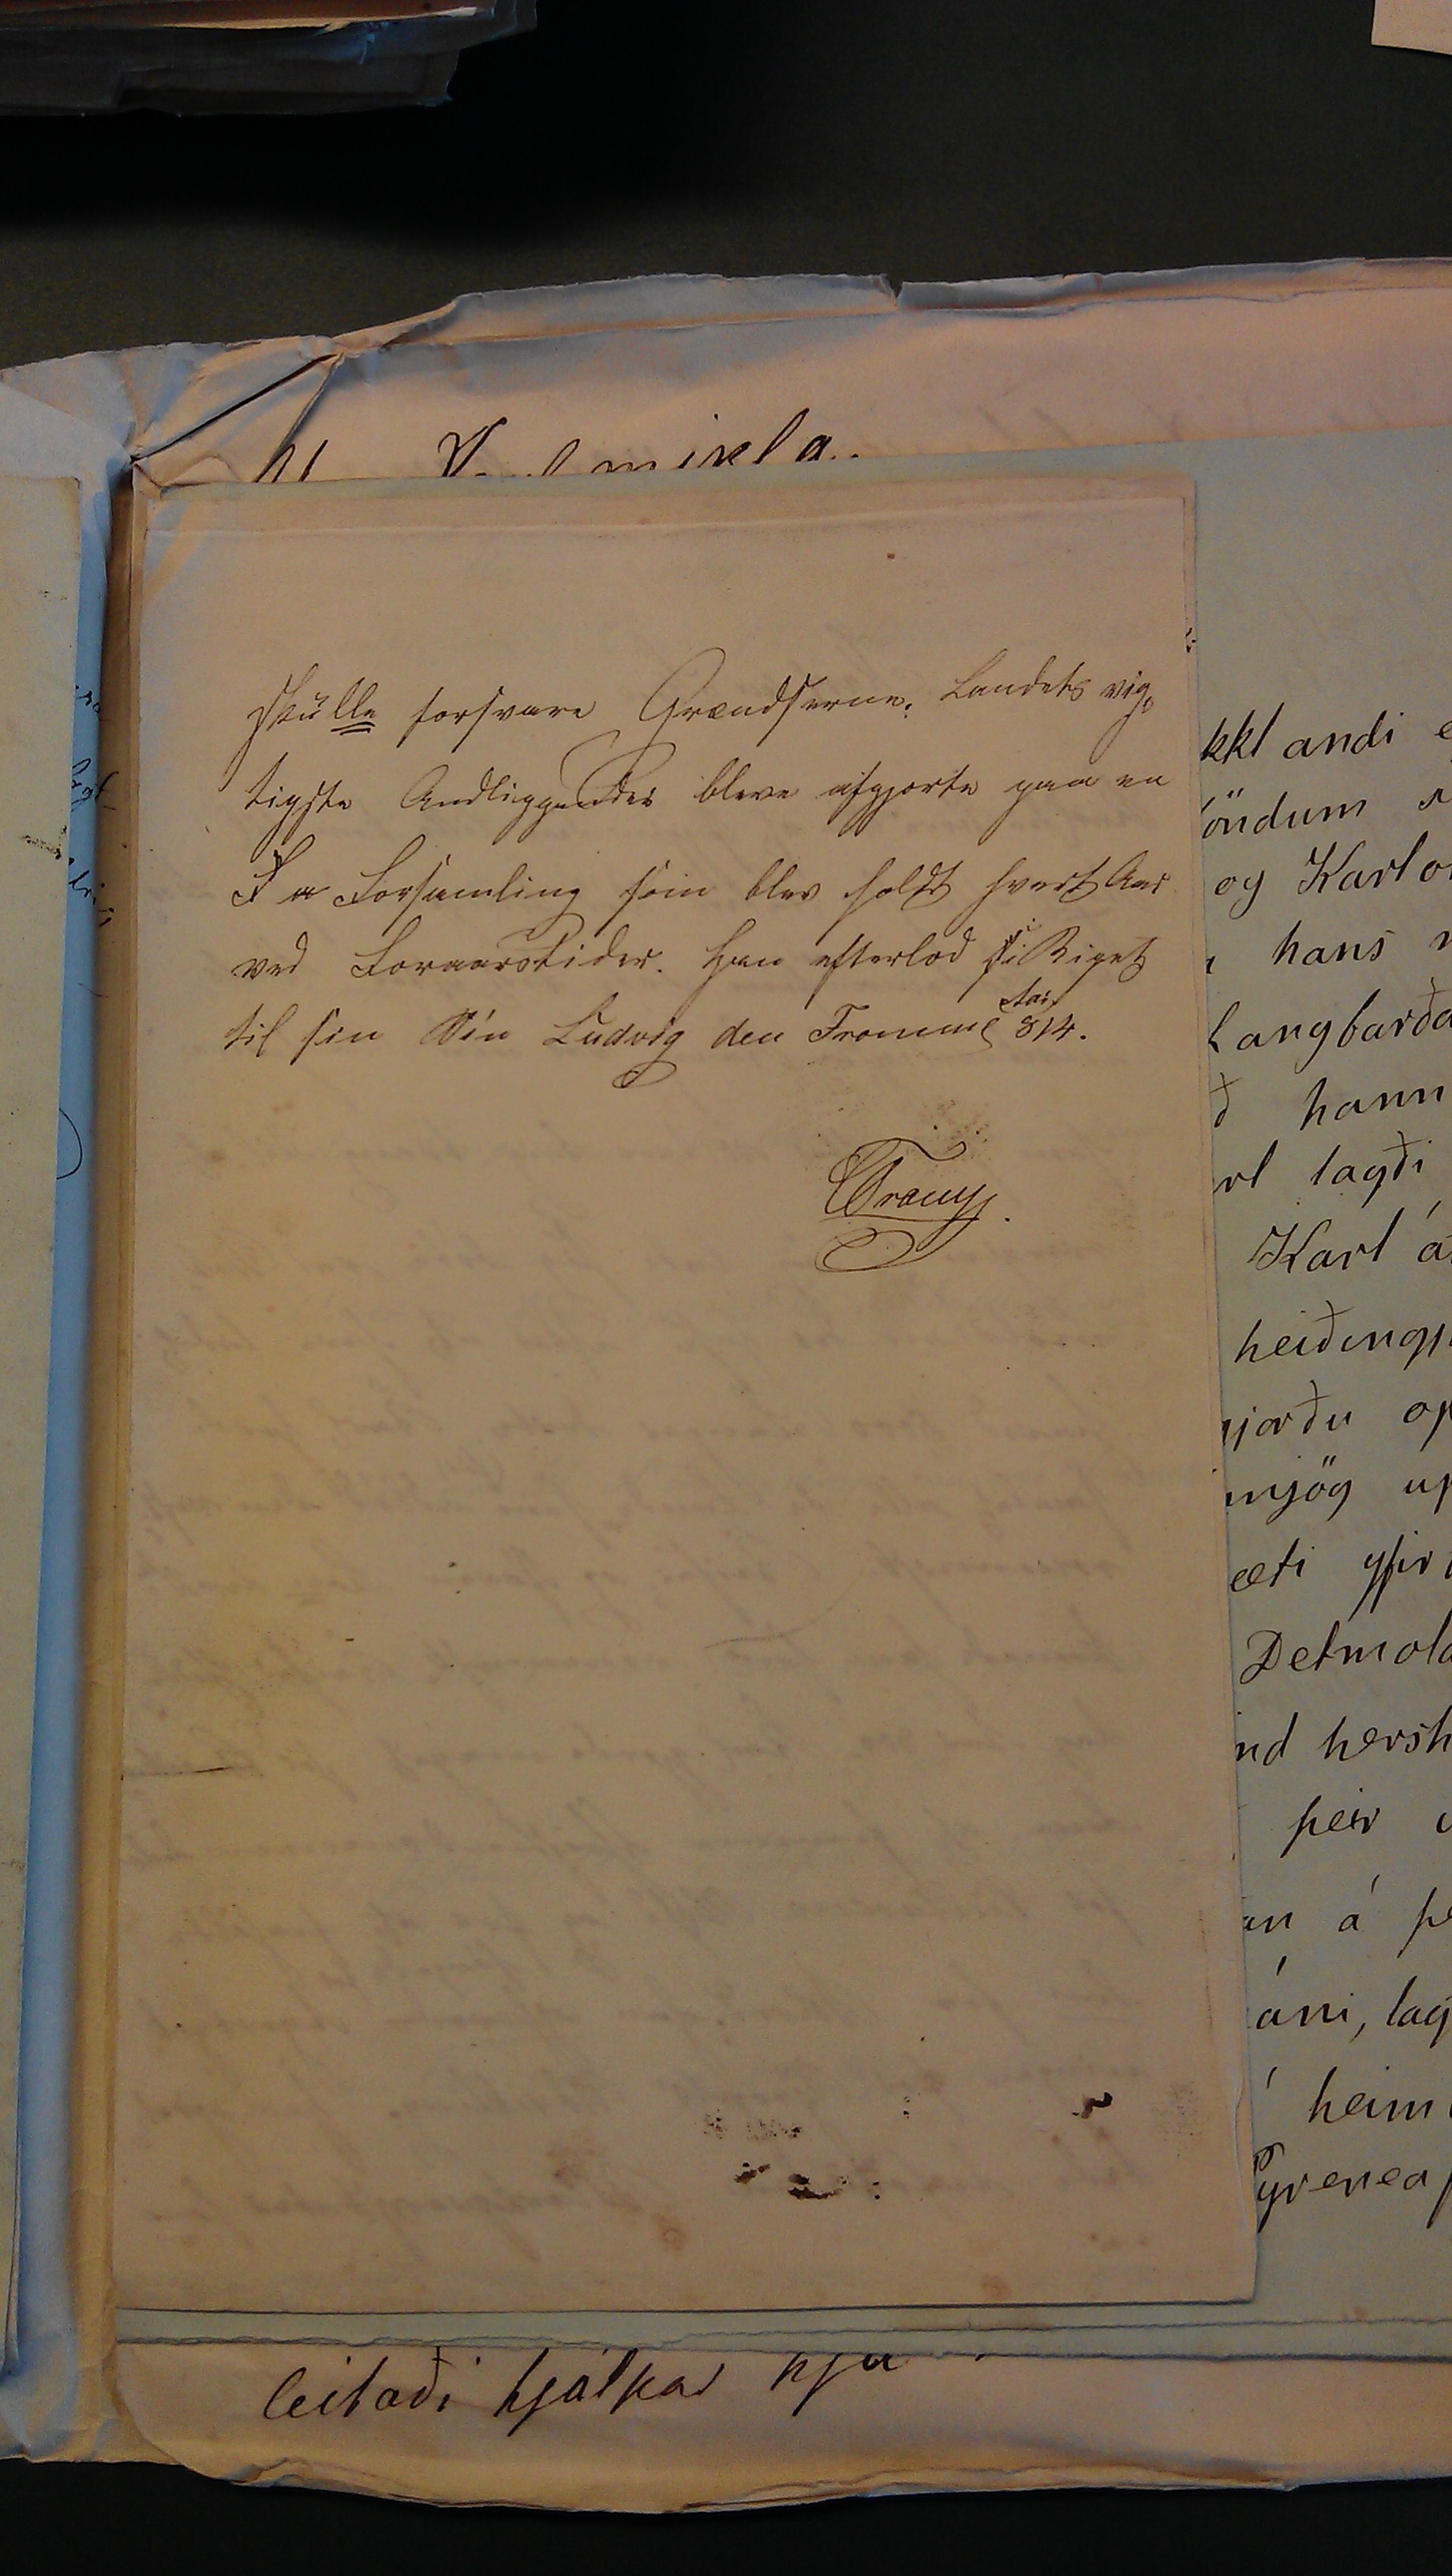 mikla.
skulle forsvare Grændserne. Landets vig-
tigste Andliggender bleve afgjorte paa en
Forsamling som blev holdt hvert Aar
ved Foraarstider. Han efterlod Riget
til sin Sön Ludvig den Fromme 814.
kkl andi
öndum
og Karl
hans
Langbarða
hann
rl lagði
Karl
heiðingj
mjög
æti yfir
Detmold
nd hersh
þeir
an á þe
áni, lag
heim
Pyrenea
leitaði hjálpar